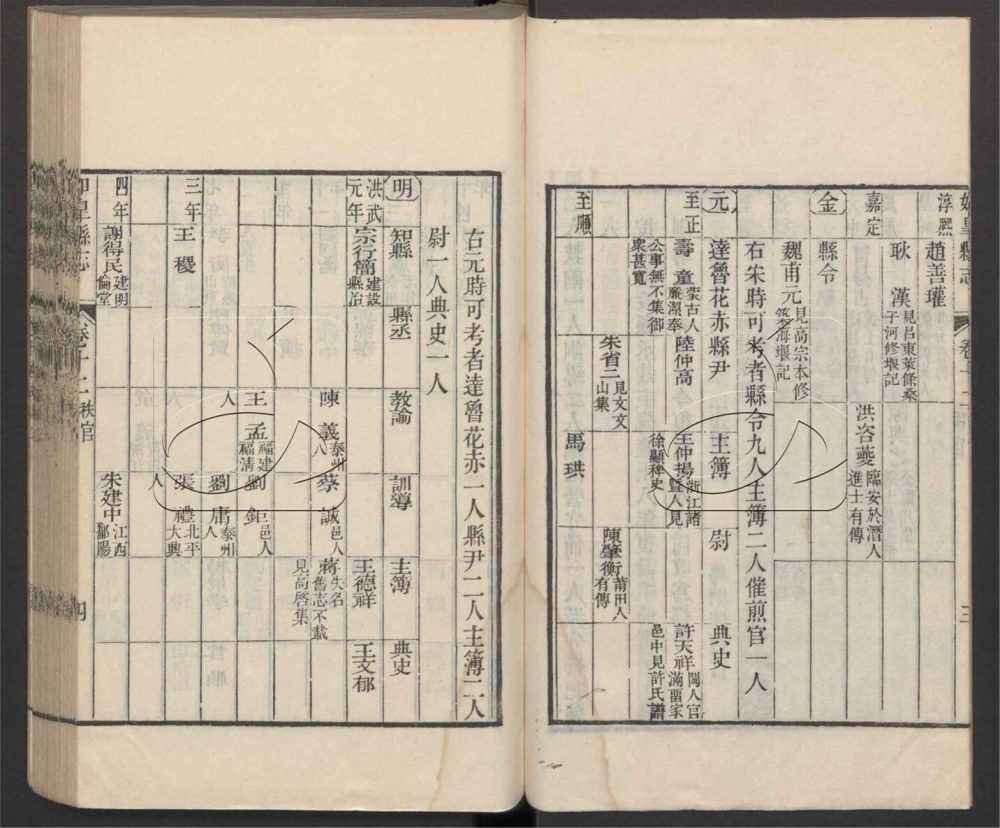 如皋縣志 卷十二 三
淳熙 趙善瓘
耿漢 見呂東萊條桑子河修堰記
嘉定 洪咨夔 臨安於潛人進士有傳
金 縣令
魏甫元 見高宗本修築海堰記
右宋時可考者縣令九人主簿二人催煎官一人
元 達魯花赤 縣尹 主簿 尉 典史
至正 壽童 蒙古人廉潔奉公事無不集御衆甚寬 陸仲高 王仲揚 浙江諸暨人見徐顯稗史 許天祥 閩人官滿畱家邑中見許氏譜
朱省二 見文文山集 陳肇衡 莆田人有傳
至順 馬珙
右元時可考者達魯花赤一人縣尹二人主簿二人
尉一人典史一人
明 知縣 縣丞 教諭 訓導 主簿 典史
洪武元年 宗行簡 建設縣治 王德祥 王文郁
陳義 泰州人 蔡誠 邑人 蔣 失名舊志不載見高啓集
王孟 福建福清人 劉鉅 邑人
劉庸 泰州人
三年 王稷 張禮 北平大興人
四年 謝得民 建明倫堂 朱建中 江西鄱陽
如皋縣志 卷十二 秩官 四